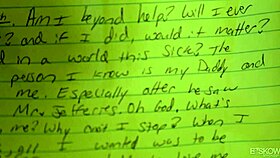 h. Am I beyond help? Will I ever
? and if I did, would it matter?
d in a world this sick? The
person I know is my Daddy and
me. Especially after he saw
Mrs. Jefferies. Oh God, what's
me? Why can't I stop? When I
all I wanted was to be
BTSKOW